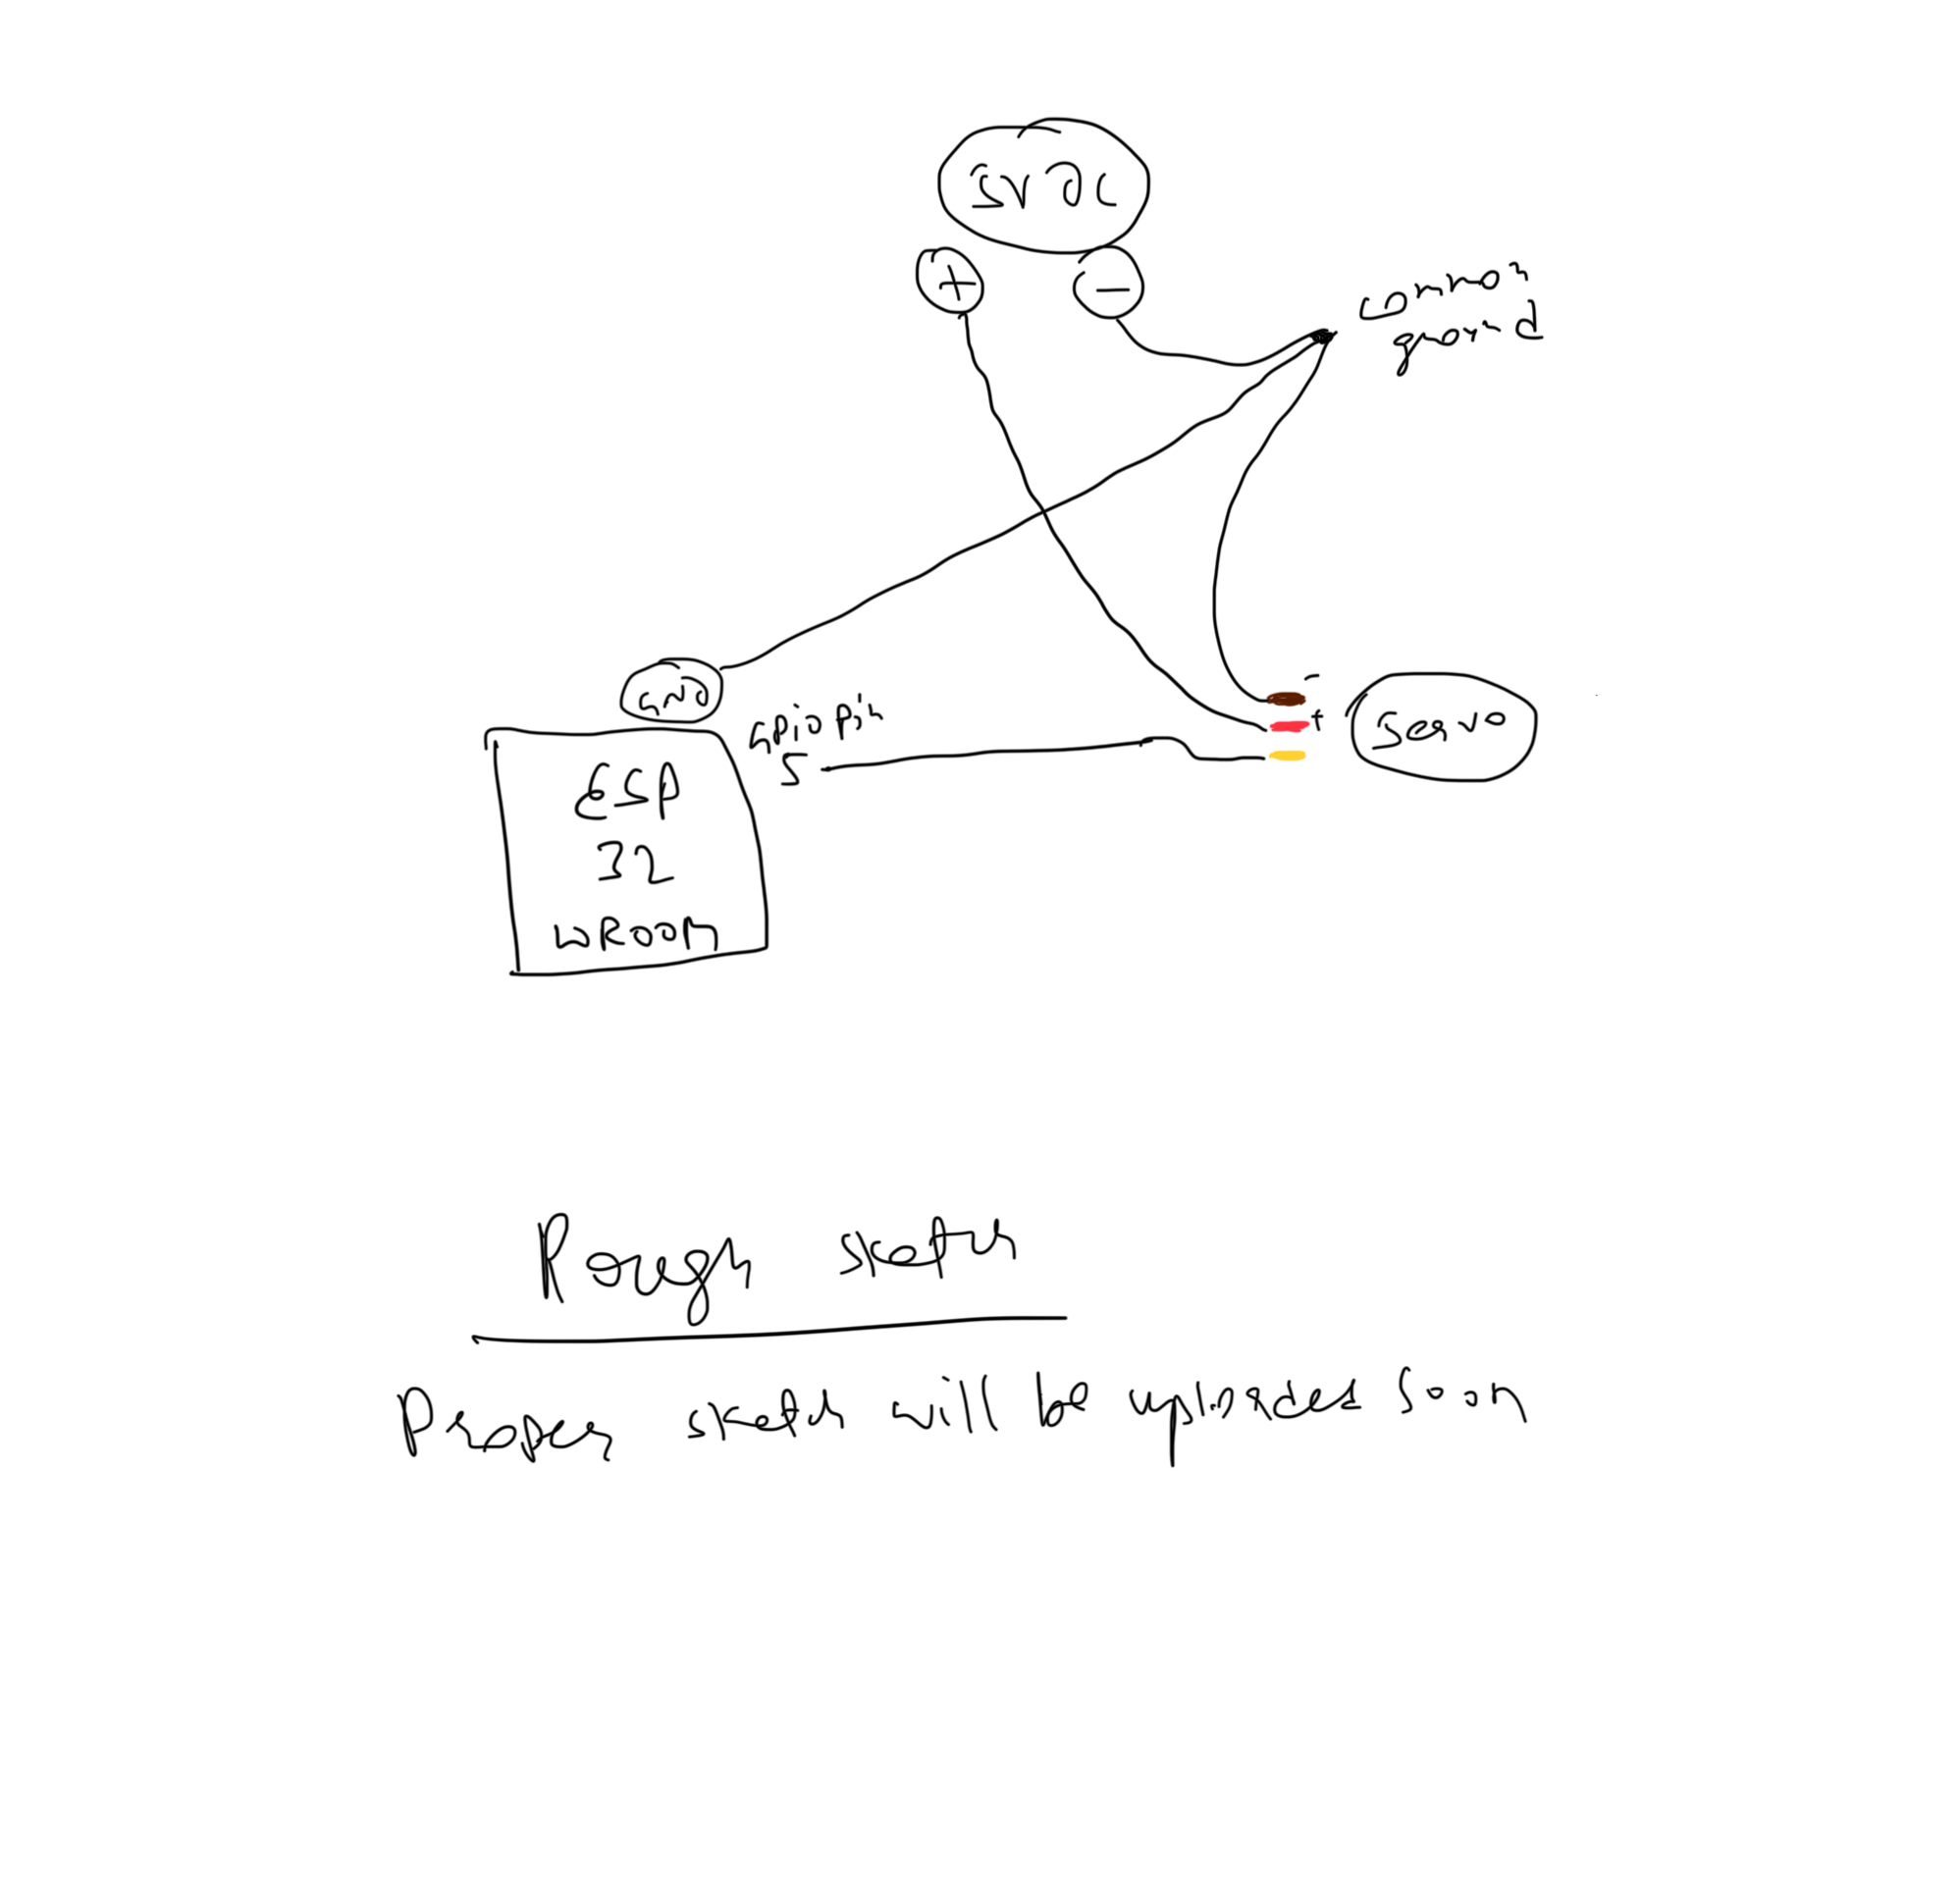 5V DC
+
−
Common
ground
GND
GPIO Pin
5
ESP
32
WROOM
-
+
Servo
Rough sketch
Proper sketch will be uploaded soon